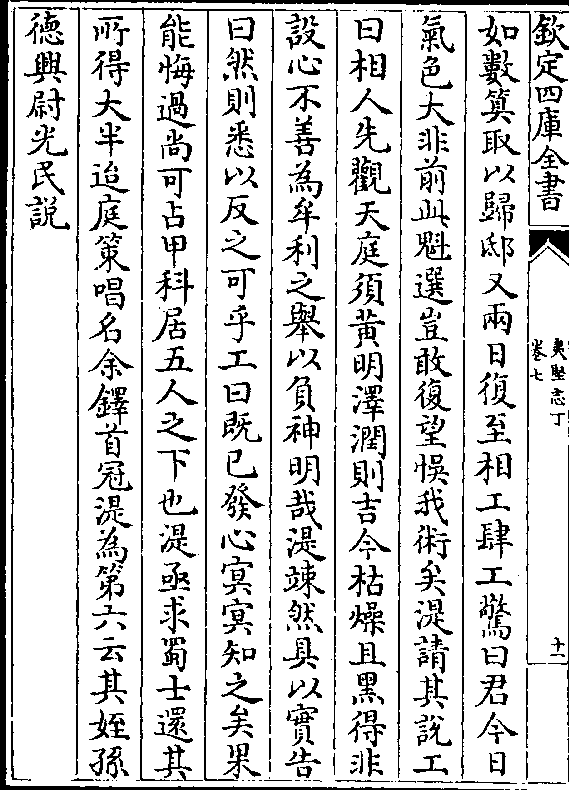 欽定四庫全書
夷堅志丁
卷七
十一
如數算取以歸邸又兩日復至相工肆工驚曰君今日
氣色大非前此魁選豈敢復望悞我術矣湜請其說工
曰相人先觀天庭須黃明澤潤則吉今枯燥且黑得非
設心不善為牟利之舉以負神明哉湜竦然具以實告
曰然則悉以反之可乎工曰既已發心冥冥知之矣果
能悔過尚可占甲科居五人之下也湜亟求蜀士還其
所得大半迨庭策唱名余鐸首冠湜為第六云其姪孫
德興尉光民說